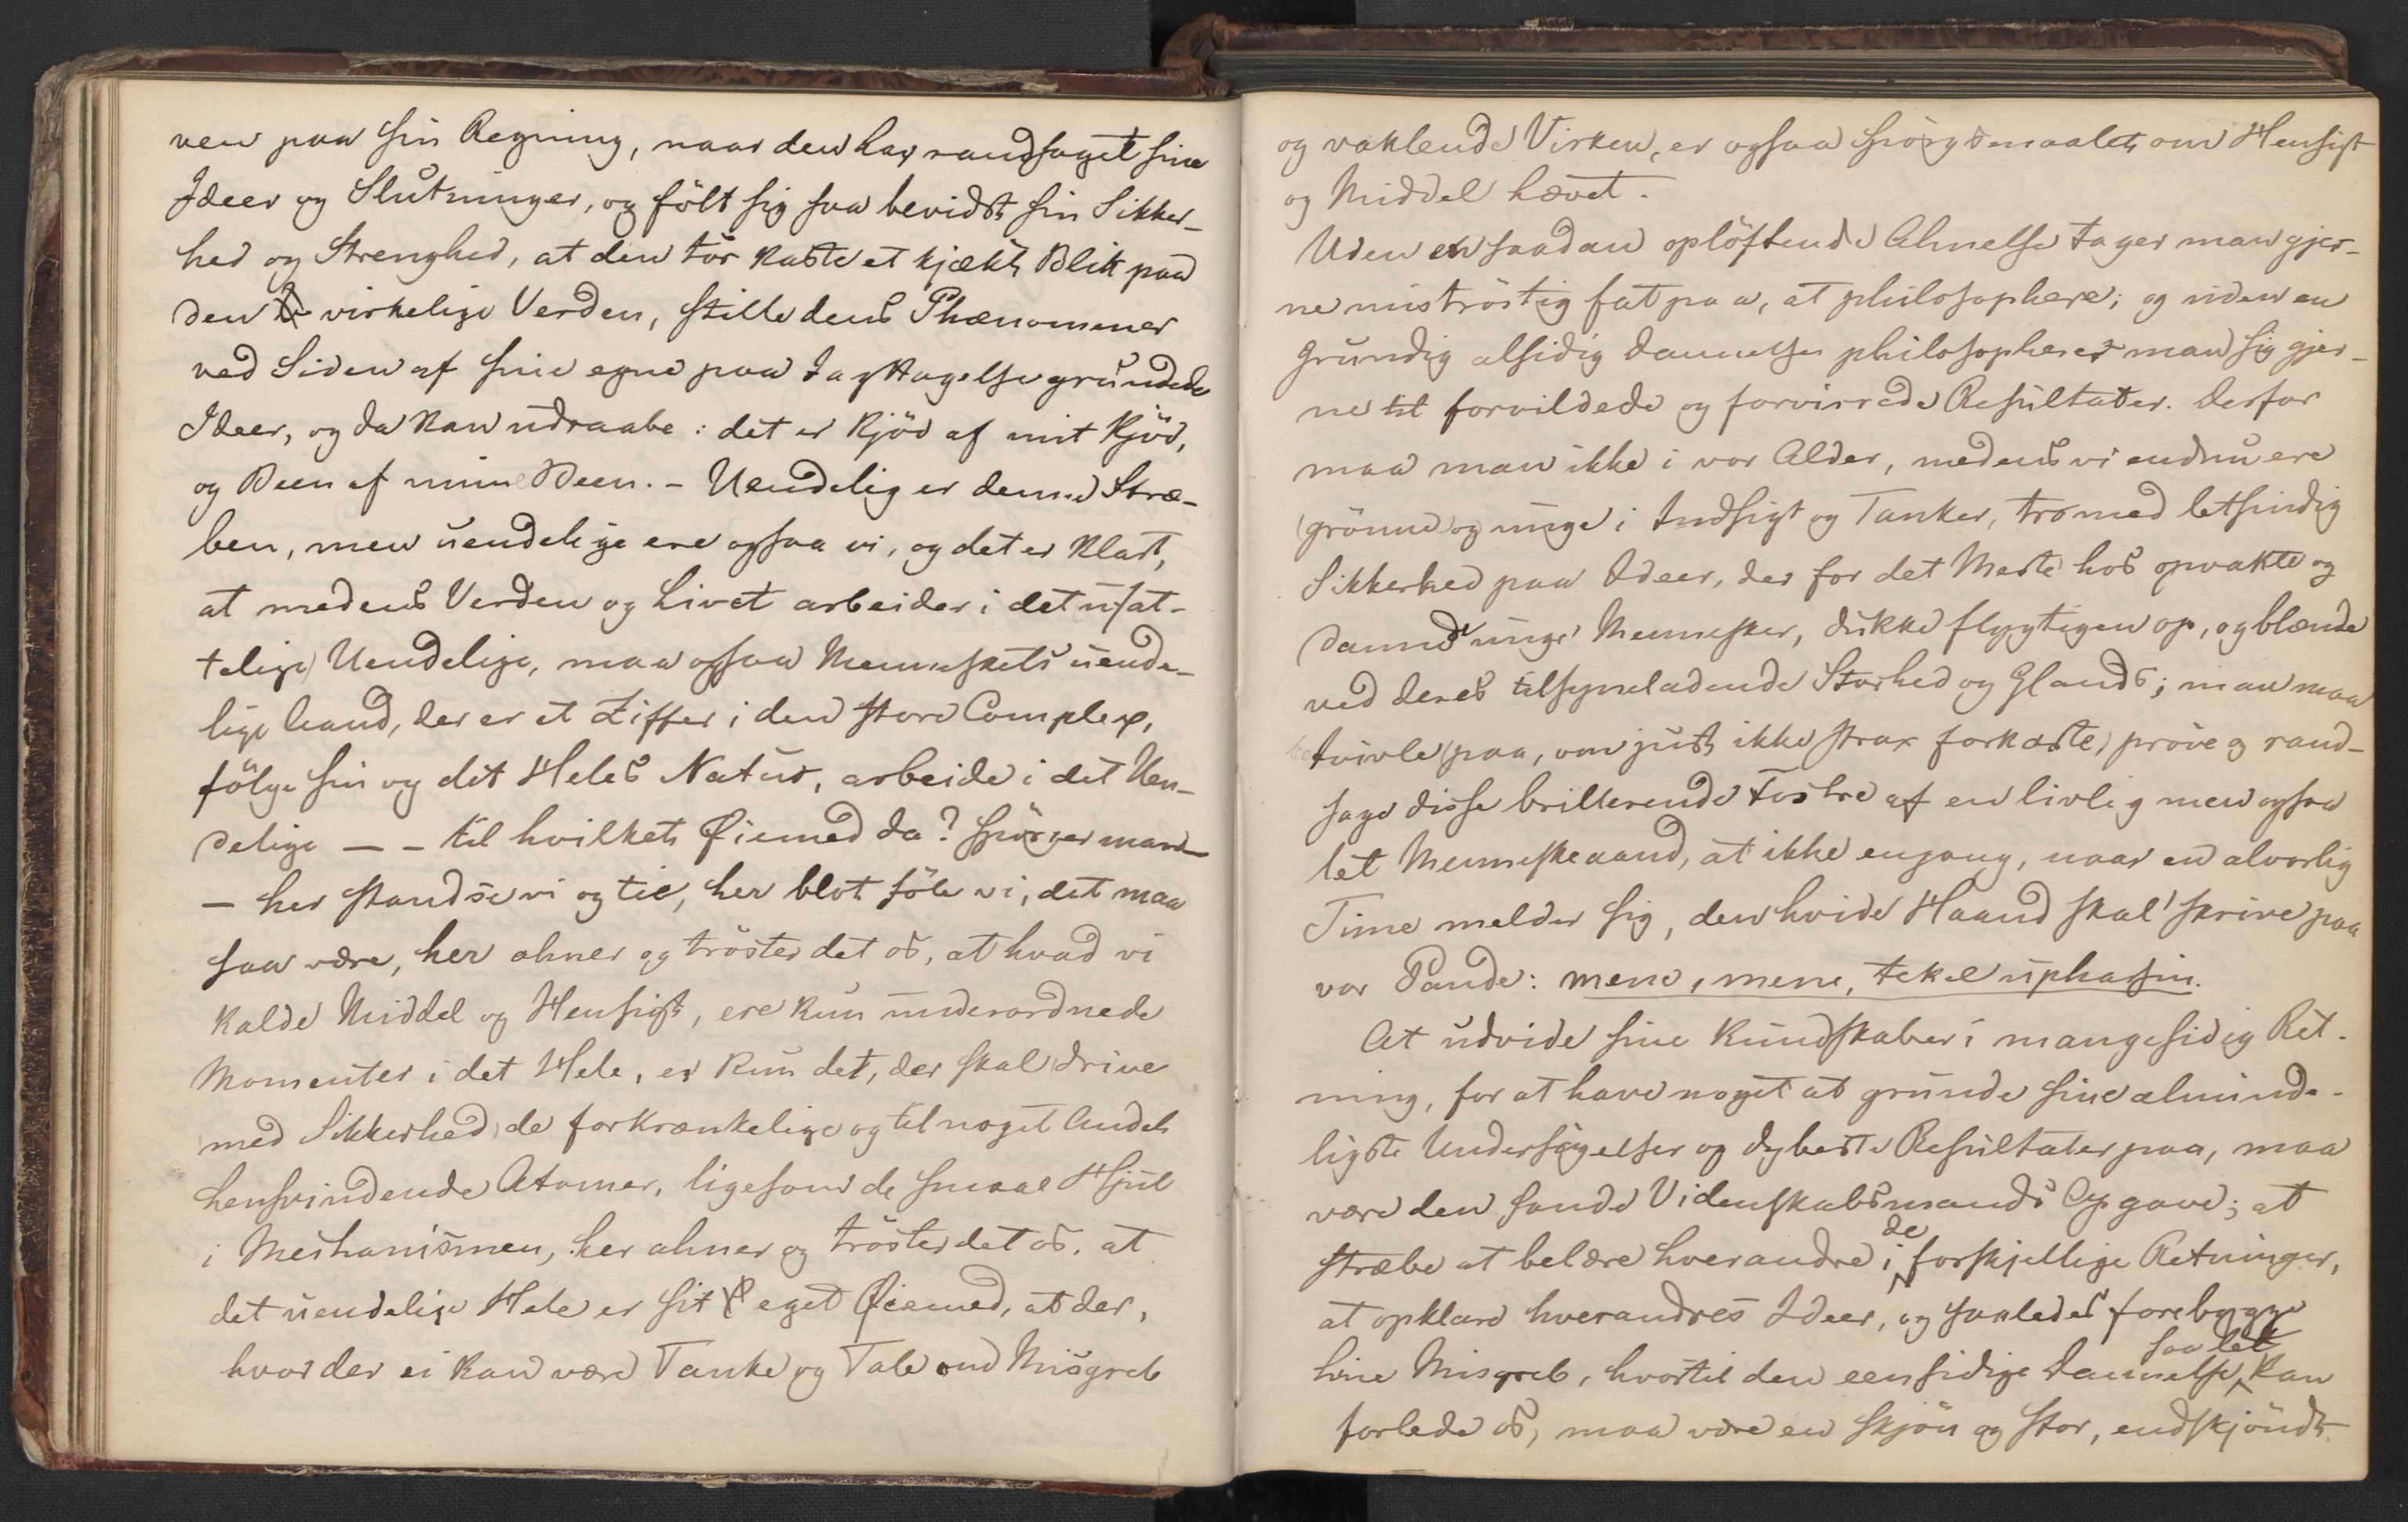 ven paa sin Regning, naar den har randsaget sine
Ideer og Slutninger, og fölt sig saa bevidst sin Sikker-
hed og Strenghed, at den tör kaste et kjækt Blik paa
den virkelige Verden, stille dens Phænomener
ved Siden af sine egne paa Iagttagelse grundede
Ideer, og da kan udraabe: det er Kjöd af mit Kjöd,
og Been af mine Been. - Uendelig er denne Stræ-
ben, men uendelige ere ogsaa vi, og det er klart,
at medens Verden og Livet arbeider i det ufat-
telige Uendelige, maa ogsaa Menneskets uende-
lige Aand, der er et Ziffer i den store Complex,
fölge sin og det Heles Natur, arbeide i det Uen-
delige — - til hvilket Øiemed da? spörger man —
— her standse vi og tie, her blot föle vi, det maa
saa være, her ahner og tröster det os, at hvad vi
kalde Middel og Hensigt, ere kun underordnede
Momenter i det Hele, er kun det, der skal drive
med Sikkerhed de forkrænkelige og til noget Andet
hensvindende Atomer, ligesom de smaae Hjul
i Mechanismen, her ahner og tröster det os, at
det uendelige Hele er sit eget Øiemed, at der,
hvor der ei kan være Tanke og Tale om Misgreb
og vaklende Virken, er ogsaa Spörgsmaalet om Hensigt
og Middel hævet.
Uden en saadan oplöftende Ahnelse tager man gjer-
ne miströstig fat paa, at philosophere; og uden en
grundig alsidig Dannelse philosopherer man sig gjer-
ne til forvildede og forvirrede Resultater. Derfor
maa man ikke i vor Alder, medens vi endnu ere
grönne og unge i Indsigt og Tanker, tro med letsindig
Sikkerhed paa Ideer, der for det Meste hos opvakte og
dannede unge Mennesker, dukke flygtigen op, og blænde
ved deres tilsyneladende Storhed og Glands; man maa
tvivle paa, om just ikke strax forkaste, pröve og rand-
sage disse brillerende Fostre af en livlig men ogsaa
let Menneskeaand, at ikke engang, naar en alvorlig
Time melder sig, den hvide Haand skal skrive paa
vor Pande: mene, mene, tekel uphasin.
At udvide sine Kundskaber i mangesidig Ret-
ning, for at have noget at grunde sine alminde-
ligste Undersögelser og dybeste Resultater paa, maa
være den sande Videnskabsmands Opgave; at
stræbe at belære hverandre i de forskjellige Retninger,
at opklare hverandres Ideer, og saaledes forebygge
hine Misgreb, hvortil den eensidige Dannelse saa let kan
forlede os, maa være en skjön og stor, endskjöndt